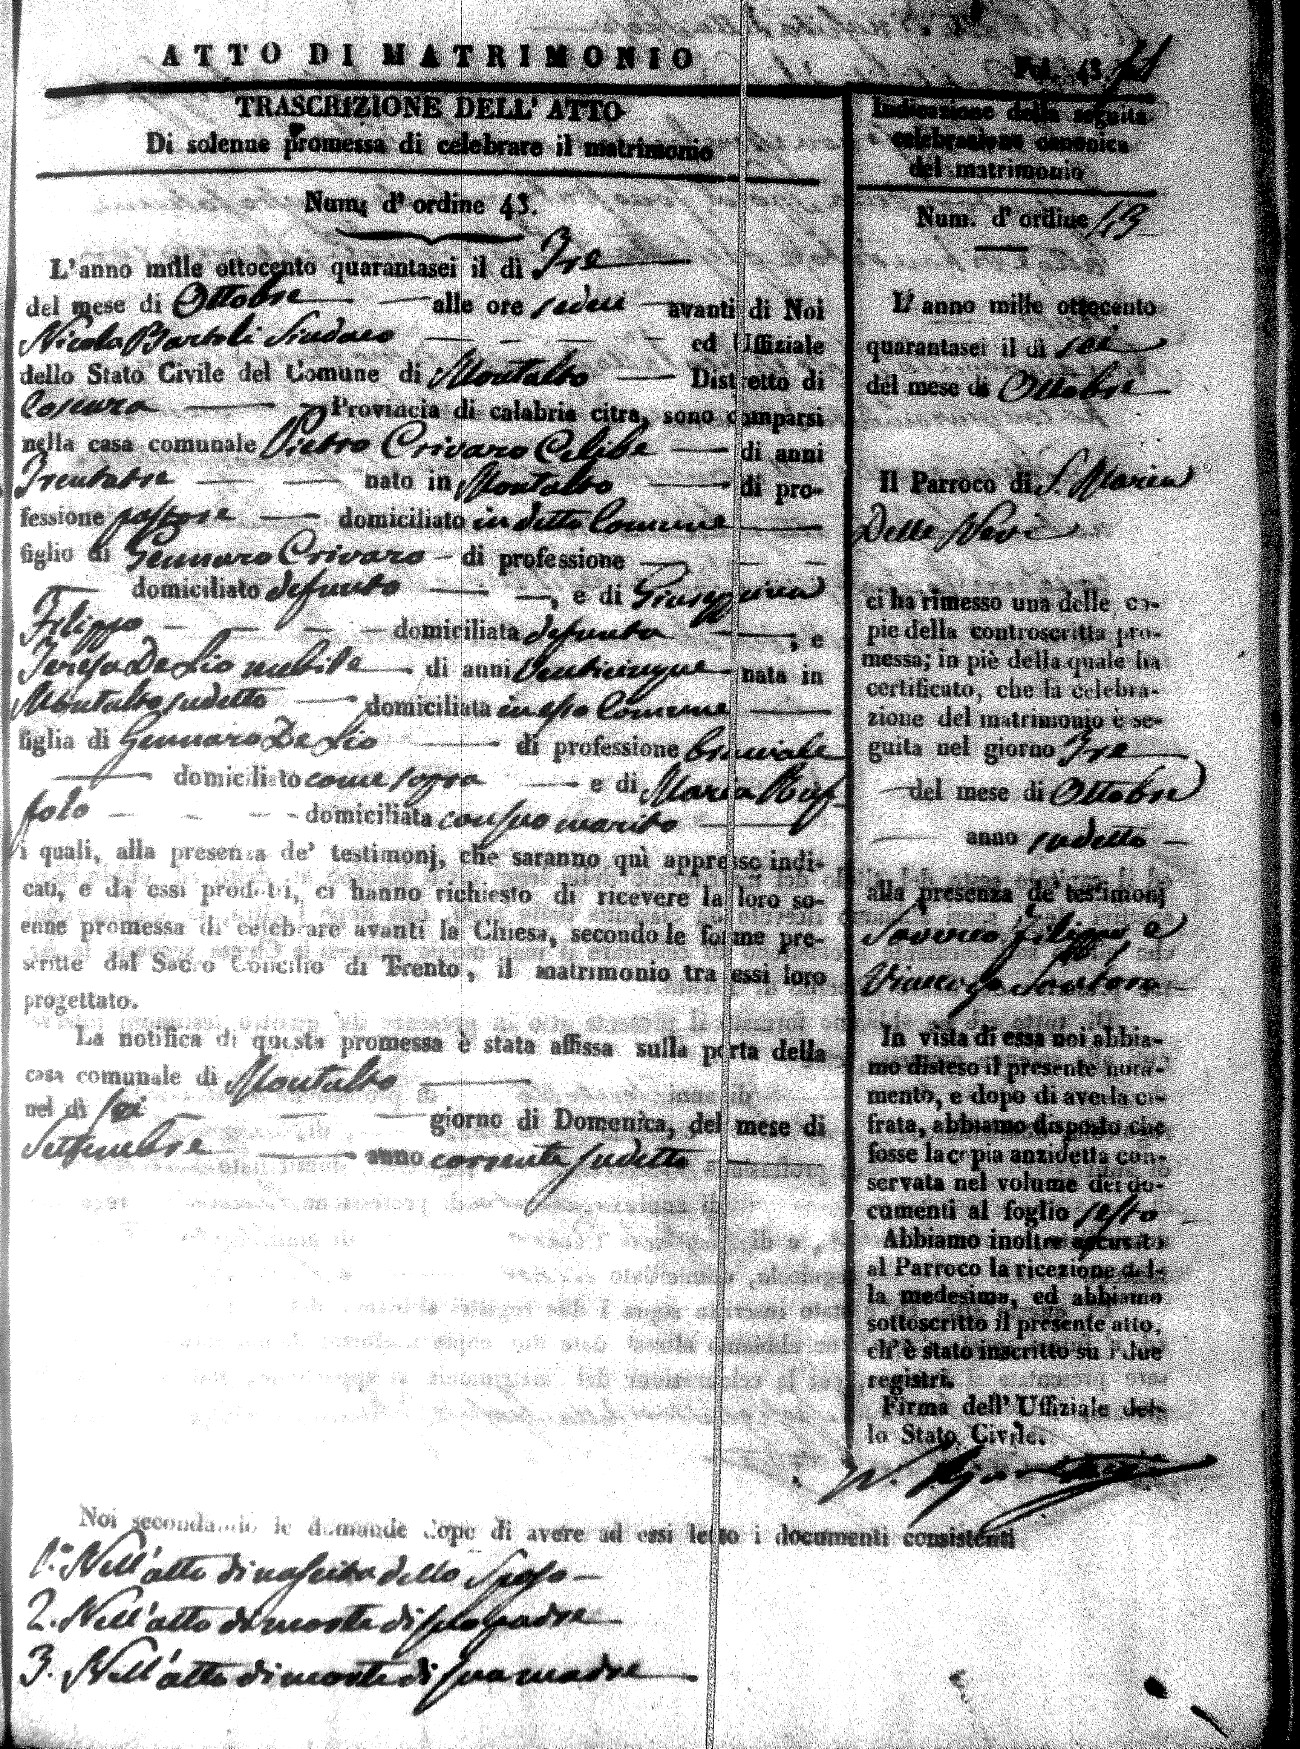 ATTO DI MATRIMONIO
Fol. 43. 71
TRASCRIZIONE DELL' ATTO
Di solenne promessa di celebrare il matrimonio
Num. d' ordine 43.
L'anno mille ottocento quarantasei il dì Tre
del mese di Ottobre alle ore sedeci avanti di Noi
Nicola Bartoli Sindaco ed Uffiziale
dello Stato Civile del Comune di Montalto Distretto di
Cosenza Provincia di calabria citra, sono comparsi
nella casa comunale Pietro Crivaro Celibe di anni
Trentatre nato in Montalto di pro-
fessione pastore domiciliato in detto Comune
figlio di Gennaro Crivaro di professione
domiciliato defunto , e di Giuseppina
Filippo domiciliata defunta , e
Teresa De Lio nubile di anni Venticinque nata in
Montalto sudetto domiciliata in esso Comune
figlia di Gennaro De Lio di professione bracciale
domiciliato come sopra e di Maria Ruf-
folo domiciliata con suo marito
i quali, alla presenza de' testimonj, che saranno quì appresso indi-
cati, e da essi prodotti, ci hanno richiesto di ricevere la loro so-
enne promessa di celebrare avanti la Chiesa, secondo le forme pre-
scritte dal Sacro Concilio di Trento, il matrimonio tra essi loro
progettato.
La notifica di questa promessa è stata affissa sulla porta della
casa comunale di Montalto
nel dì sei giorno di Domenica, del mese di
Settembre anno corrente sudetto
Noi secondando le domande dopo di avere ad essi letto i documenti consistenti
1.° Nell'atto di nascita dello Sposo
2. Nell'atto di morte di suo padre
3. Nell'atto di morte di sua madre
Indicazione della seguita
celebrazione canonica
del matrimonio
Num. d' ordine 43
L' anno mille ottocento
quarantasei il dì sei
del mese di Ottobre
Il Parroco di S. Maria
Delle Nevi
ci ha rimesso una delle co-
pie della controscritta pro-
messa; in piè della quale ha
certificato, che la celebra-
zione del matrimonio è se-
guita nel giorno Tre
del mese di Ottobre
anno sudetto
alla presenza de' testimonj
Saverio Filippo e
Vincenzo Santoro
In vista di essa noi abbia-
mo disteso il presente nota-
mento, e dopo di averla ci-
frata, abbiamo disposto che
fosse la copia anzidetta con-
servata nel volume dei do-
cumenti al foglio sesto
Abbiamo inoltre accusato
al Parroco la ricezione del-
la medesima, ed abbiamo
sottoscritto il presente atto,
ch' è stato inscritto su i due
registri.
Firma dell' Uffiziale del-
lo Stato Civile.
N. Bartoli